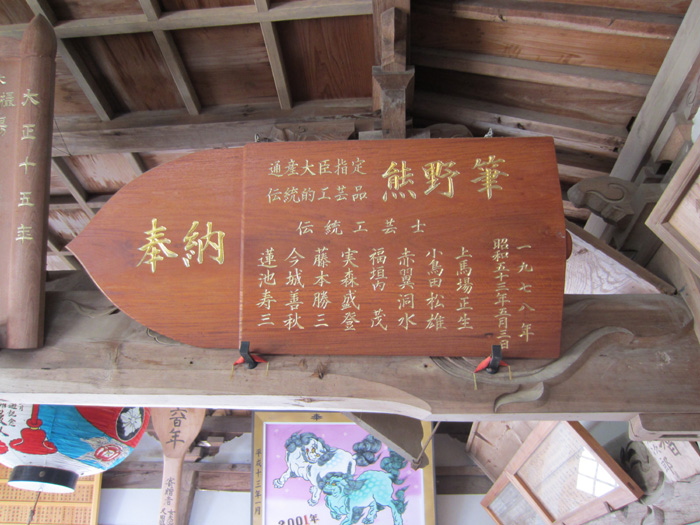 奉納
通産大臣指定
伝統的工芸品
熊野筆
伝統工芸士
一九七八年
昭和五十三年五月三日
上馬場正生
小鳥田松雄
赤翼洞水
福垣内 茂
実森盛登
藤本勝三
今城善秋
蓮池寿三
大正十五年
百年
平成十三年一月
2001年